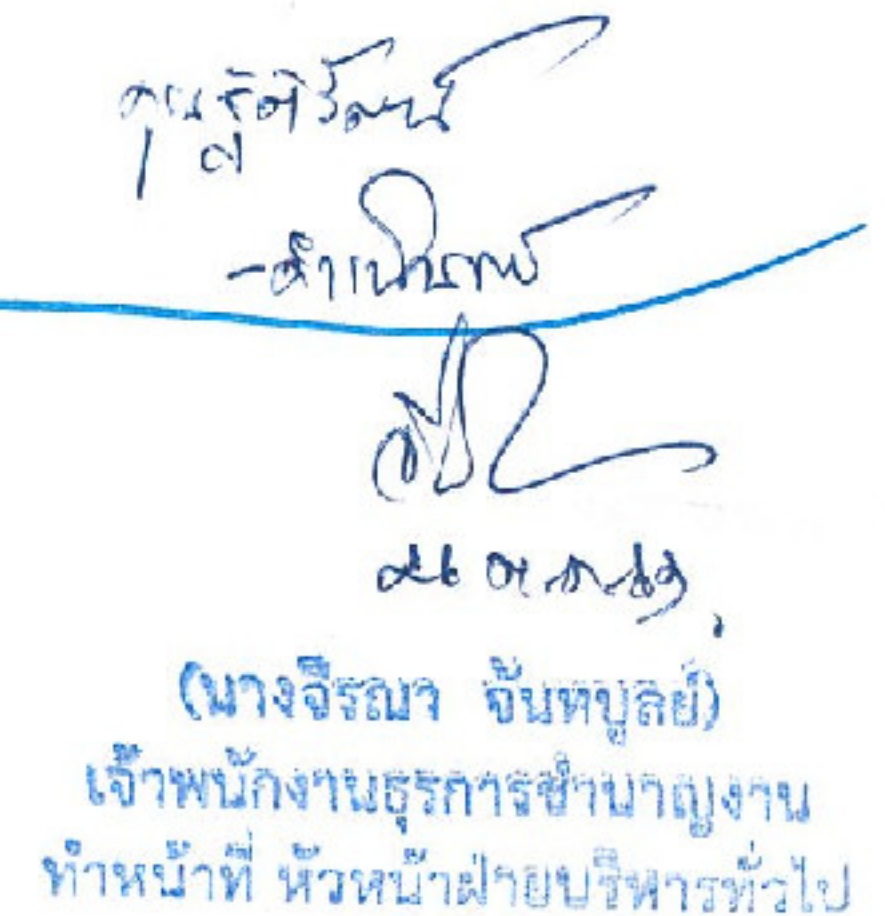 คุณฐิติรัตน์
-ดำเนินการ
(นางจีรณา จันทบูลย์)
เจ้าพนักงานธุรการชำนาญงาน
ทำหน้าที่ หัวหน้าฝ่ายบริหารทั่วไป